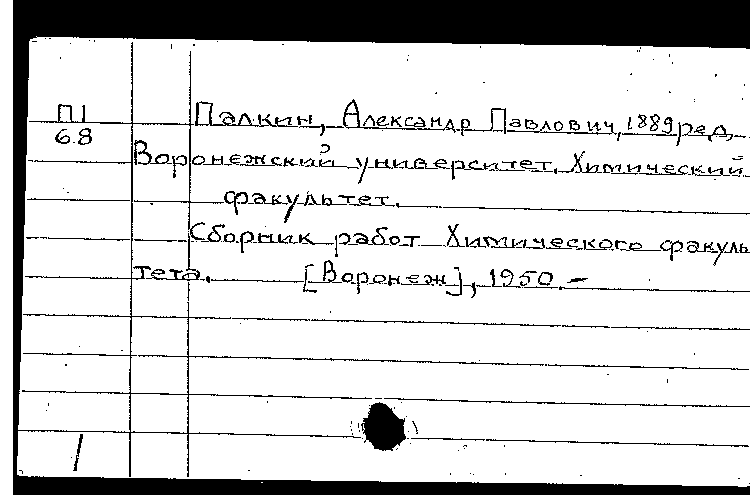 П1
68
Палкин, Александр Павлович, 1889 ред.
Воронежский университет. Химический
факультет.
Сборник работ Химического факуль
тета. [Воронеж], 1950.–